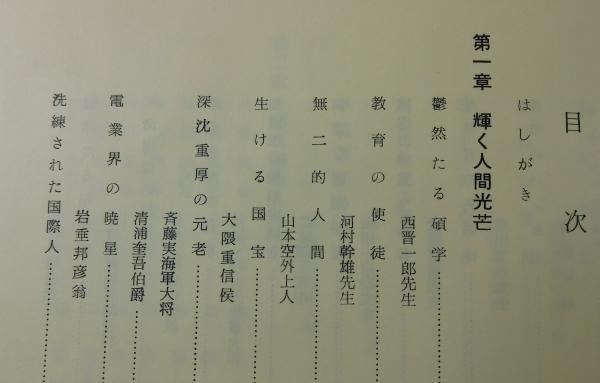 目次
はしがき
第一章 輝く人間光芒
鬱然たる碩学
西晋一郎先生
教育の使徒
河村幹雄先生
無二的人間
山本空外上人
生ける国宝
大隈重信侯
深沈重厚の元老
斉藤実海軍大将
清浦奎吾伯爵
電業界の暁星
岩垂邦彦翁
洗練された国際人